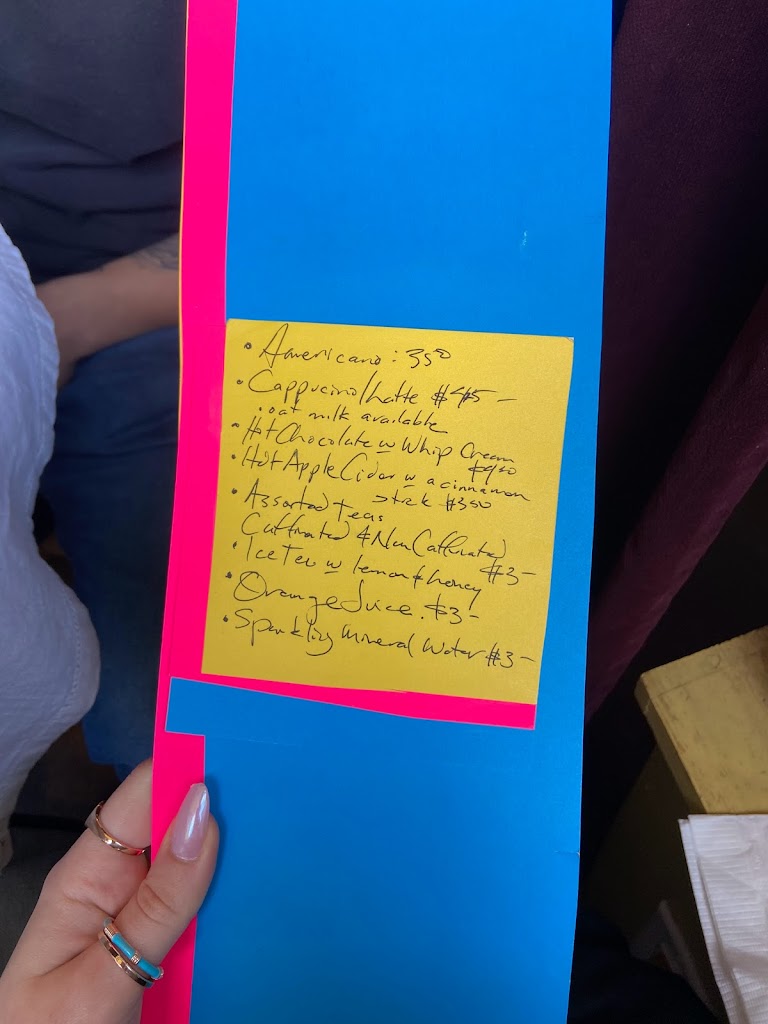 • Americano : 350
• Cappucino/Latte $5 –
• oat milk available
• Hot Chocolate w Whip Cream
$450
• Hot Apple Cider w a cinnamon
stick $350
• Assorted teas
Caffinated & Non Caffinated
$3 –
• Ice Tea w lemon & honey
• Orange Juice. $3 –
• Sparkling Mineral Water $3 –